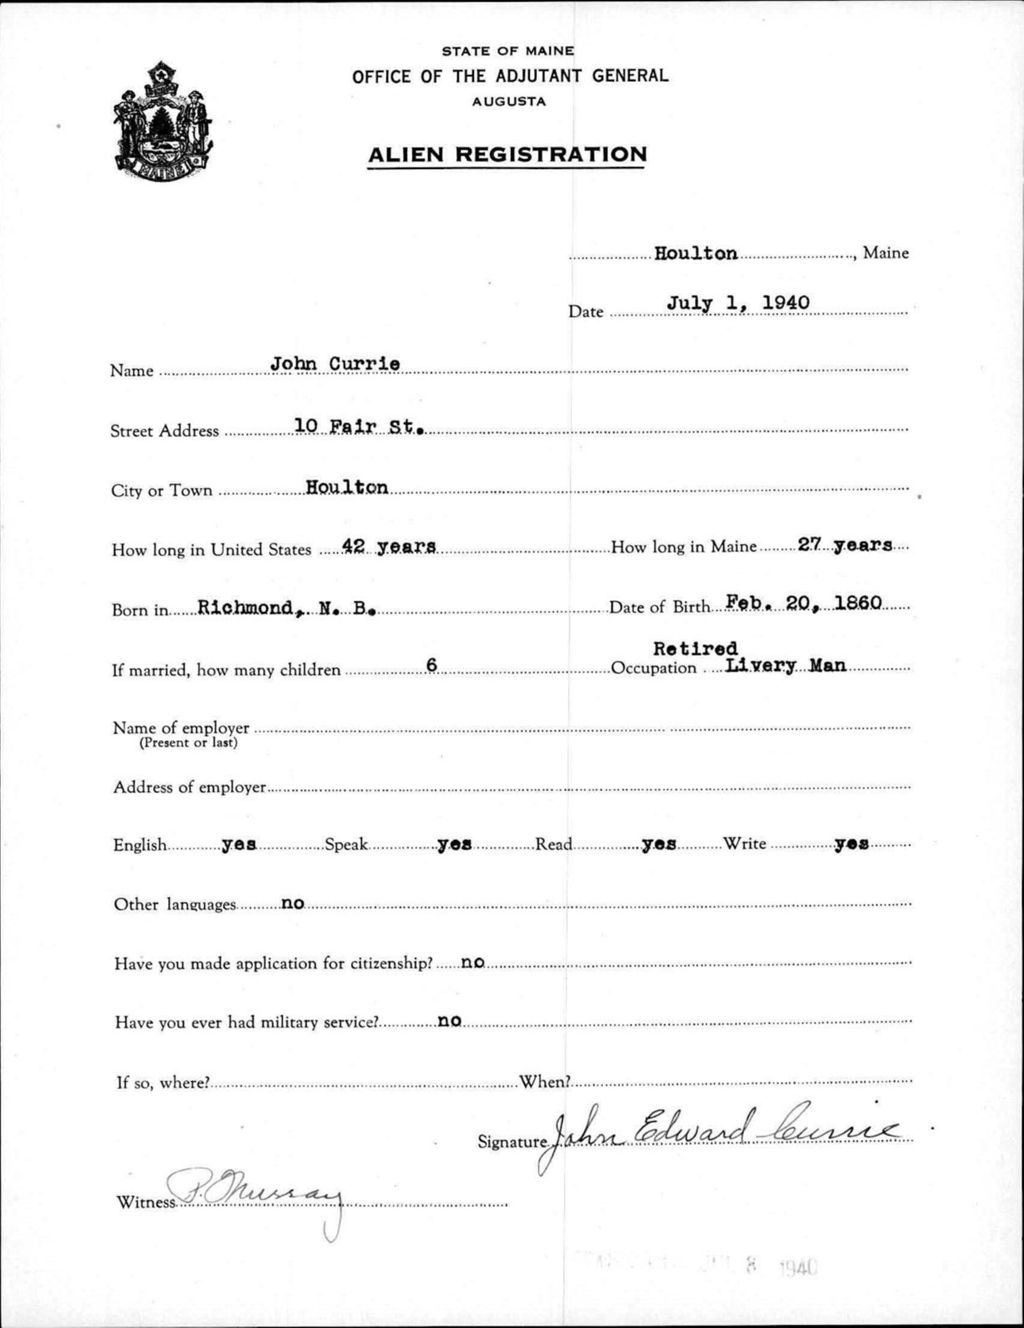 STATE OF MAINE
OFFICE OF THE ADJUTANT GENERAL
AUGUSTA
ALIEN REGISTRATION
MAINE
Houlton, Maine
Date July 1, 1940
Name John Currie
Street Address 10 Fair St.
City or Town Houlton
How long in United States 42 years How long in Maine 27 years
Born in Richmond, N. B. Date of Birth Feb. 20, 1860
Retired
If married, how many children 6 Occupation Livery Man
Name of employer
(Present or last)
Address of employer
English yes Speak yes Read yes Write yes
Other languages no
Have you made application for citizenship? no
Have you ever had military service? no
If so, where? When?
Signature John Edward Currie
Witness P. Murray
8 1940